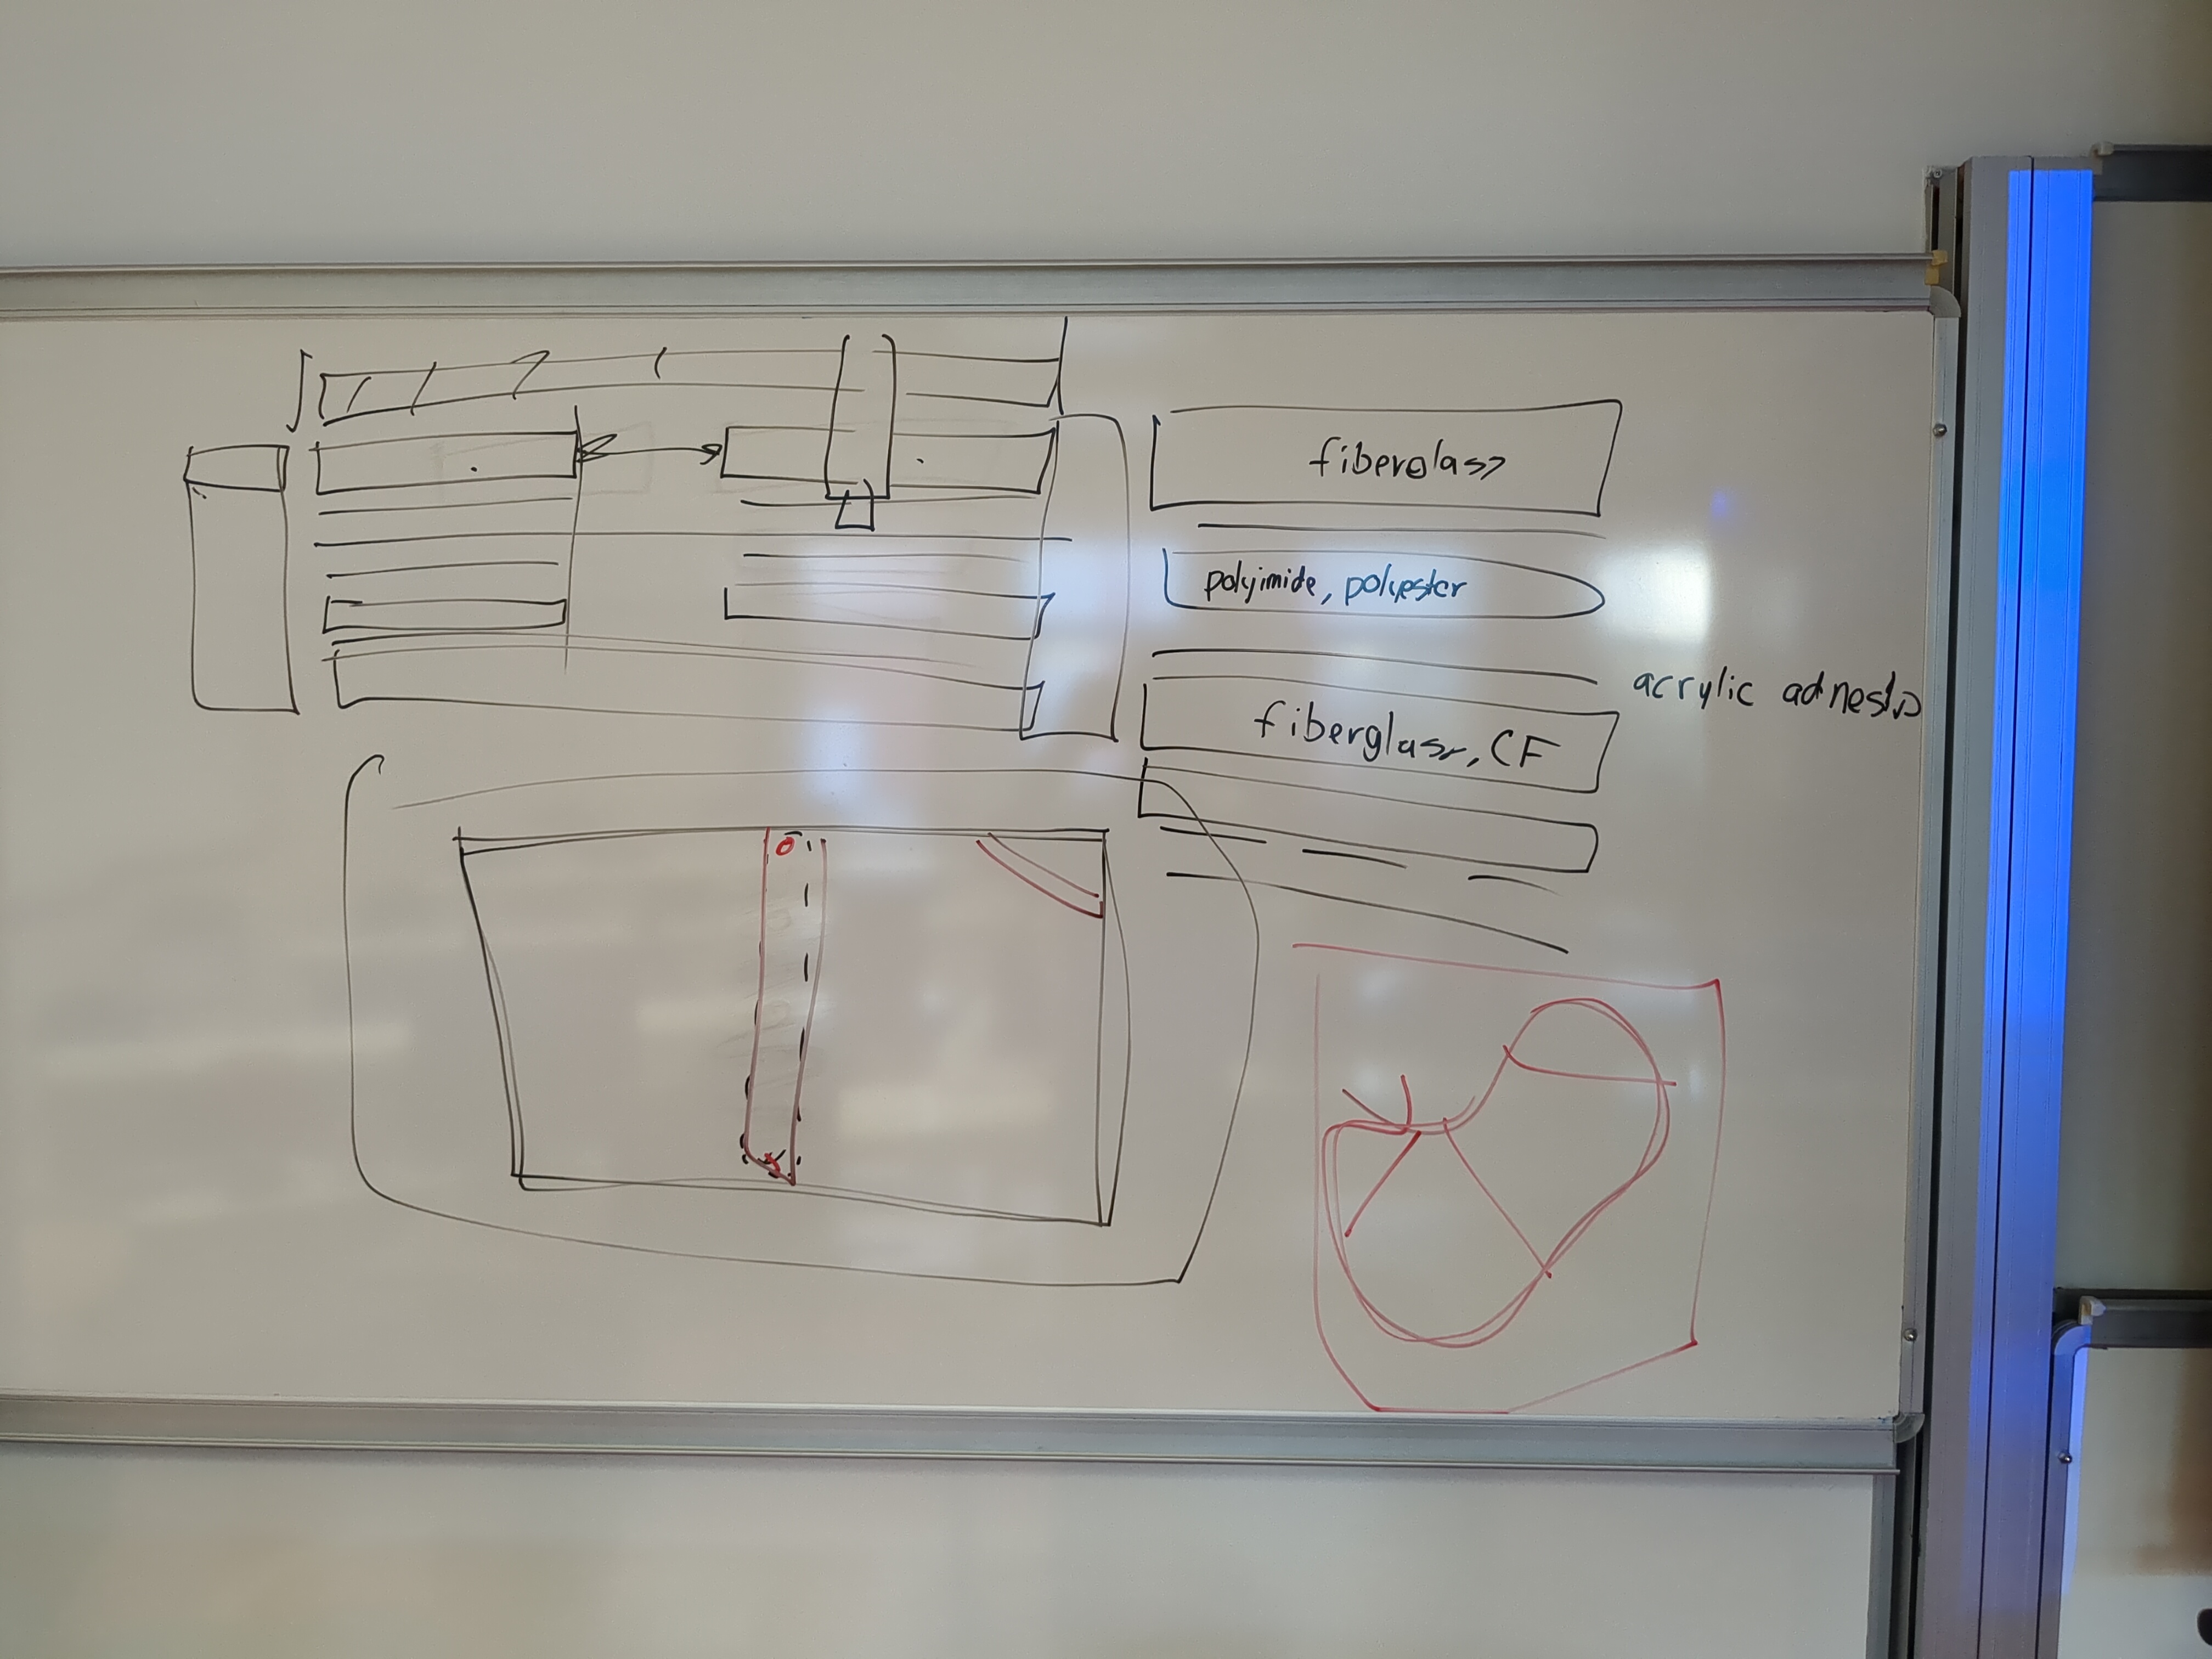 fiberglass
polyimide, polyester
acrylic adhesive
fiberglass, CF